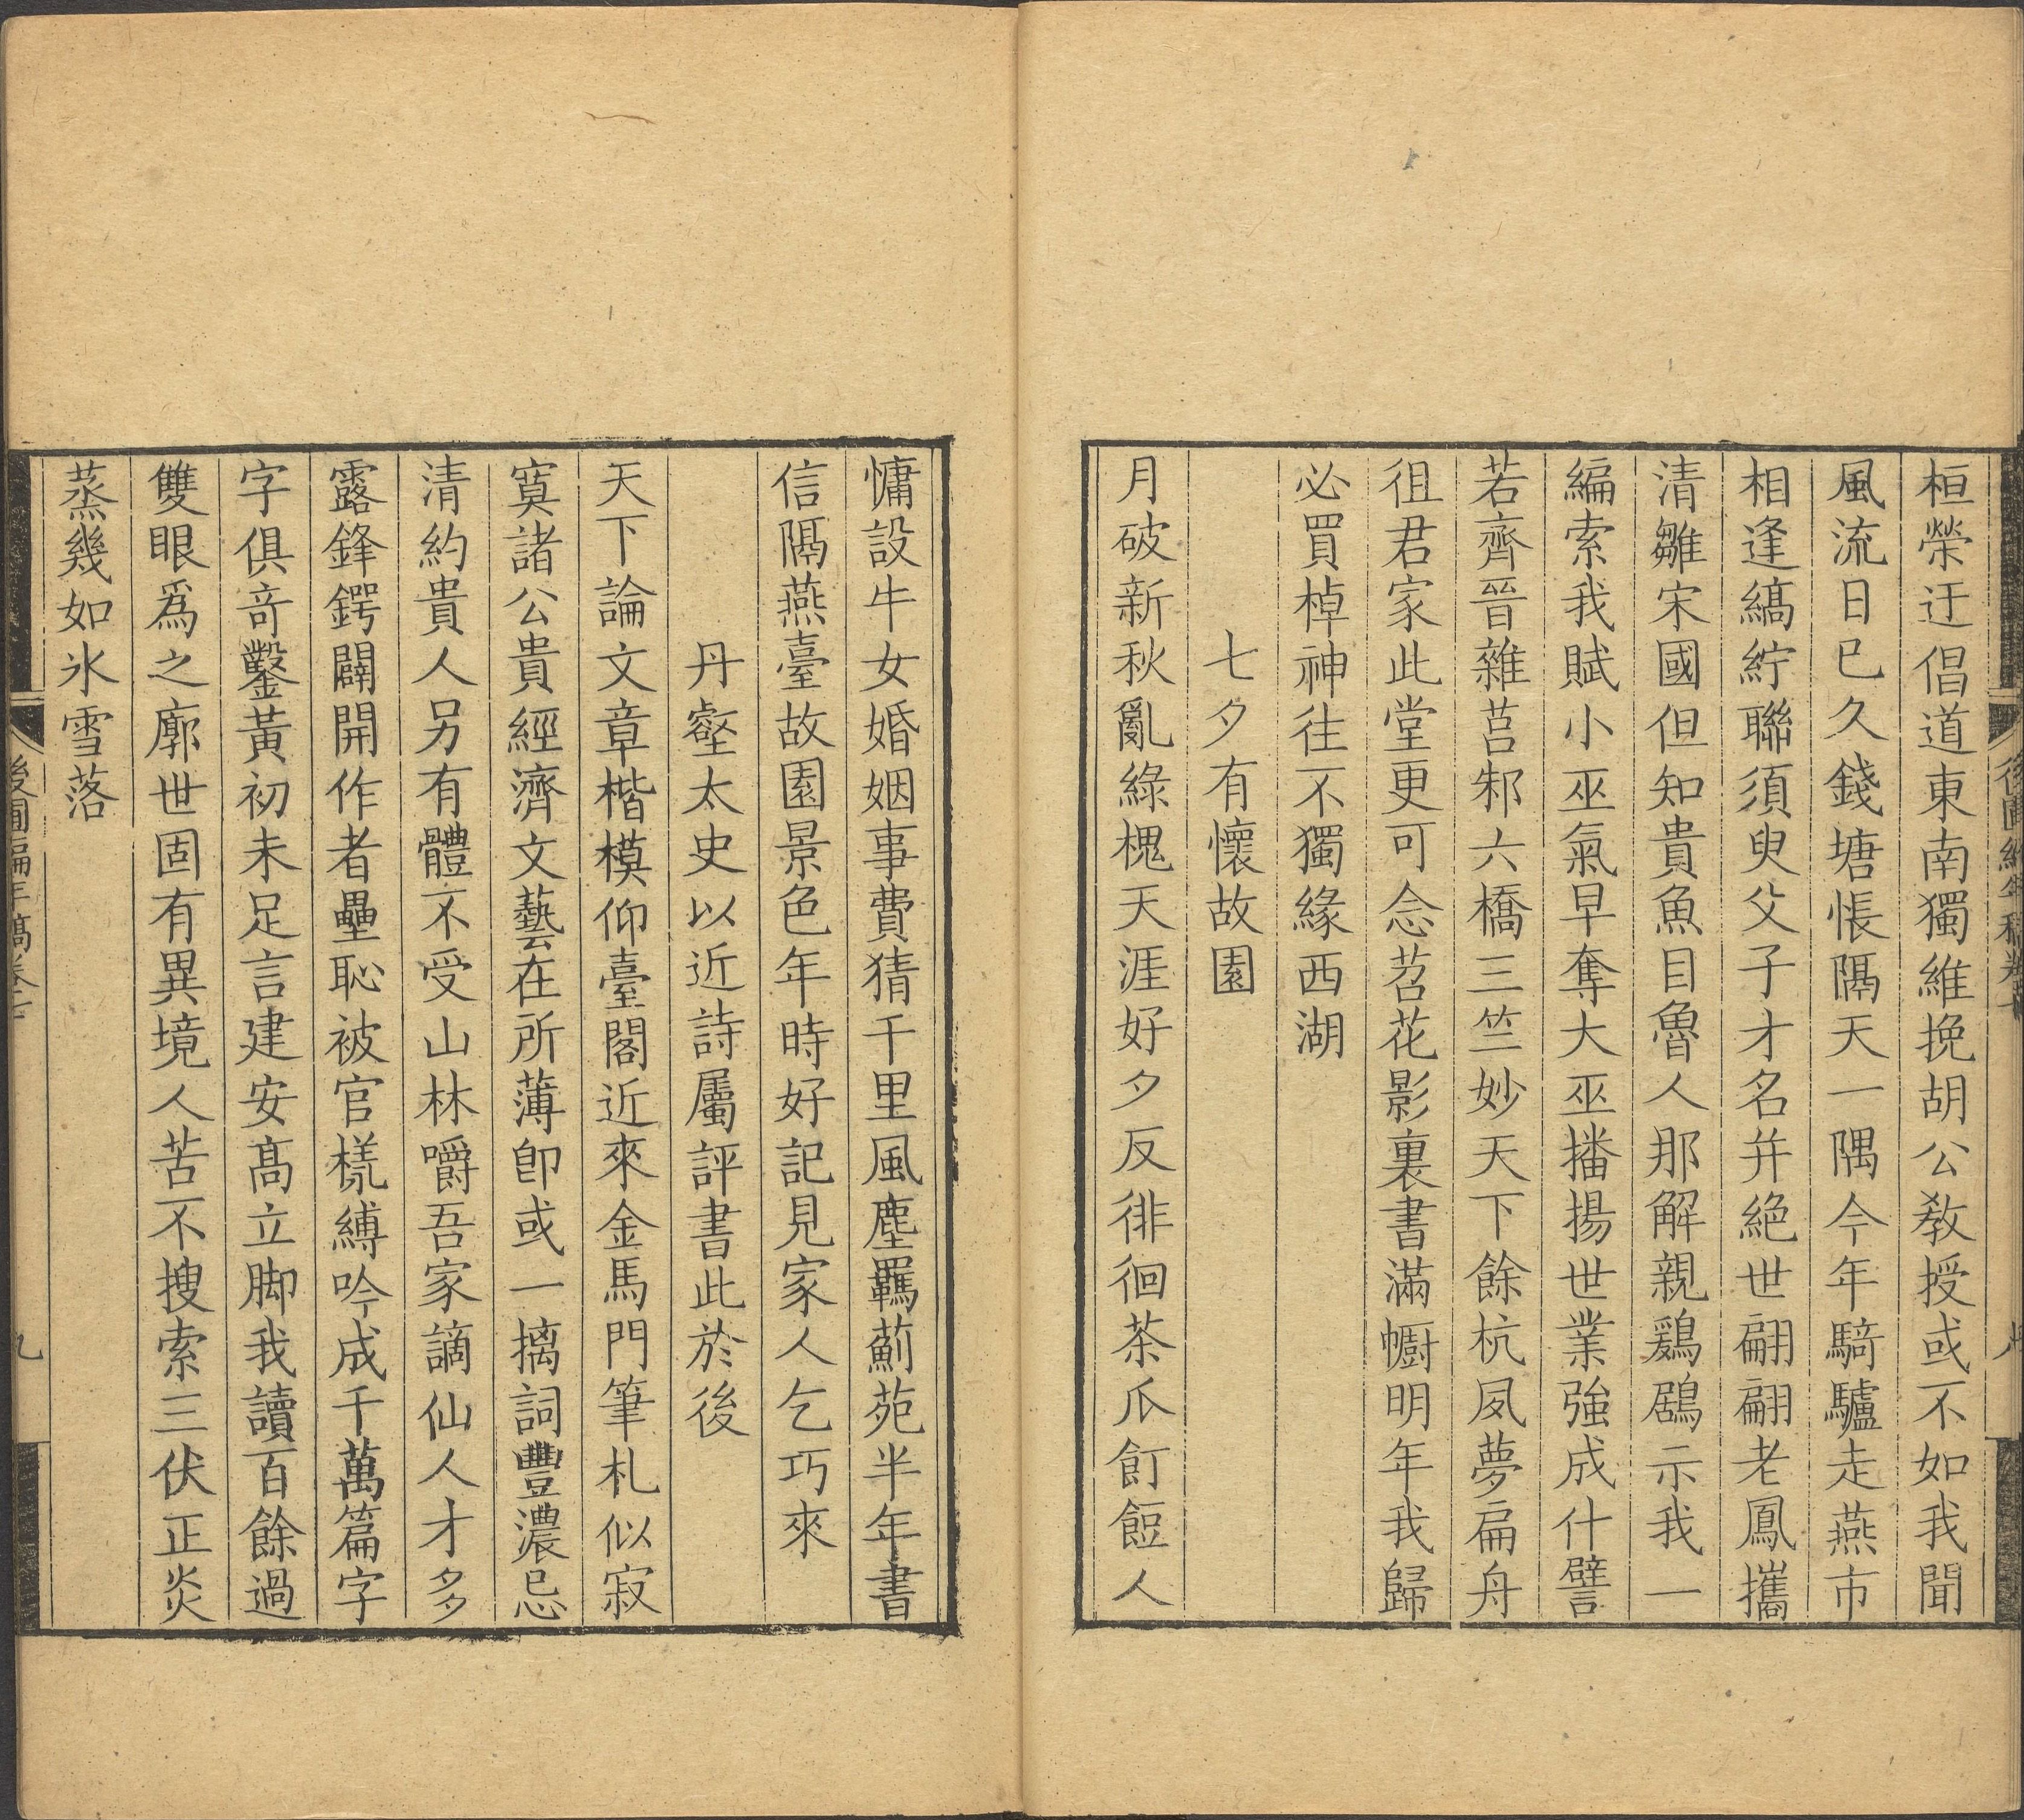 桓榮迂倡道東南獨維挽胡公教授或不如我聞
風流日已久錢塘悵隔天一隅今年騎驢走燕市
相逢縞紵聯須臾父子才名并絕世翩翩老鳳攜
清雛宋國但知貴魚目魯人那解親鶢鶋示我一
編索我賦小巫氣早奪大巫播揚世業強成什譬
若齊晉雜莒邾六橋三竺妙天下餘杭夙夢扁舟
徂君家此堂更可念苕花影裏書滿幮明年我歸
必買棹神往不獨緣西湖
七夕有懷故園
月破新秋亂綠槐天涯好夕反徘徊茶瓜飣餖人
慵設牛女婚姻事費猜千里風塵羈薊苑半年書
信隔燕臺故園景色年時好記見家人乞巧來
丹壑太史以近詩屬評書此於後
天下論文章楷模仰臺閣近來金馬門筆札似寂
寞諸公貴經濟文藝在所薄卽或一摛詞豐濃忌
清約貴人另有體不受山林嚼吾家謫仙人才多
露鋒鍔闢開作者壘恥被官㨾縛吟成千萬篇字
字俱奇鑿黃初未足言建安高立脚我讀百餘過
雙眼爲之廓世固有異境人苦不搜索三伏正炎
蒸幾如氷雪落
後圃編年稿卷七
九